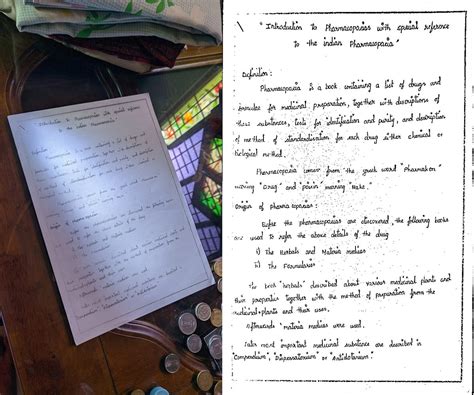 "Introduction to Pharmacopoeias with special reference
to the indian Pharmacopoeia"
Definition:
Pharmacopoeia is a book containing a list of drugs and
formulae for medicinal preparation, together with descriptions of
these substances, tests for identification and purity, and description
of method of standardisation for each drug either chemical or
biological method.
Pharmacopoeia comes from the greek word "Pharmakon"
meaning "Drug" and poiein meaning "Make."
Origin of Pharmacopoeias:
Before the pharmacopoeias are discovered, the following books
are used to refer the above details of the drug
i) The Herbals and Materia medicas
ii) The Formularies
The book "herbals" described about various medicinal plants and
their properties together with the method of preparation from the
medicinal plants and their uses.
Afterwards materia medicas were used.
Later most important medicinal substance are described in
"Compendium", "Dispensatorium" or "Antidotarium".